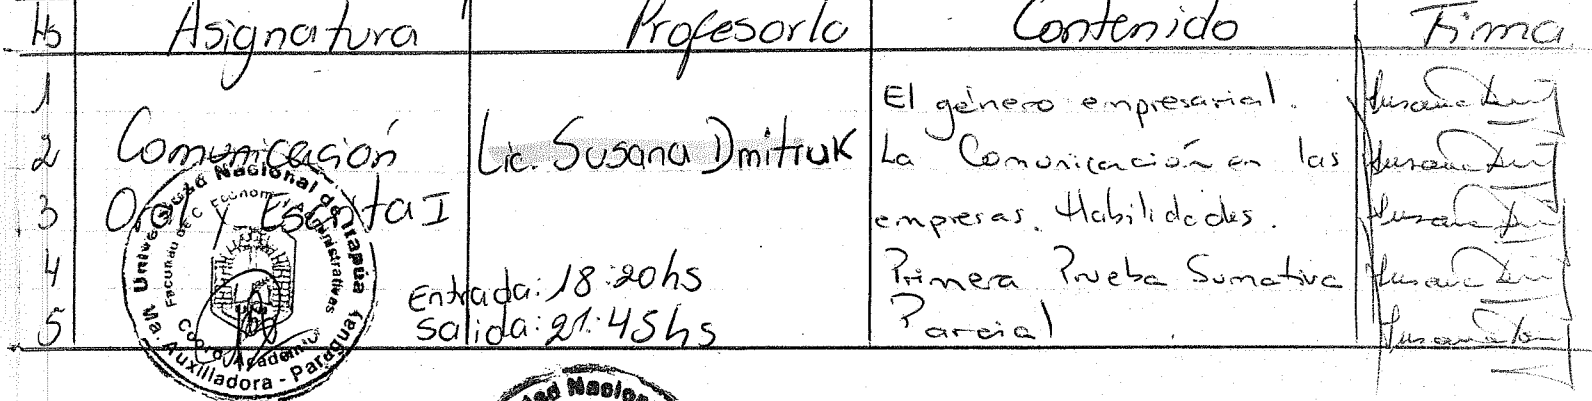 Hs Asignatura Profesor/a Contenido Firma
1 El género empresarial.
2 Comunicación Lic. Susana Dmitruk La Comunicación en las
3 Oral y Escrita I empresas. Habilidades.
4 Entrada: 18:20hs Primera Prueba Sumativa
5 Salida: 21:45hs Parcial
Universidad Nacional de Itapúa
Facultad de C. Econom Administrativas
Coord. Académic
Ma. Auxiliadora - Paraguay